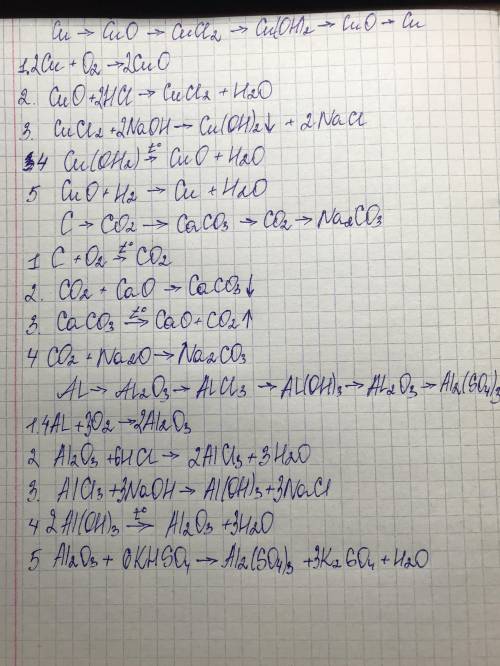 Cu → CuO → CuCl2 → Cu(OH)2 → CuO → Cu
1. 2Cu + O2 → 2CuO
2. CuO + 2HCl → CuCl2 + H2O
3. CuCl2 + 2NaOH → Cu(OH)2↓ + 2NaCl
4 Cu(OH2) t°→ CuO + H2O
5 CuO + H2 → Cu + H2O
C → CO2 → CaCO3 → CO2 → Na2CO3
1 C + O2 t°→ CO2
2. CO2 + CaO → CaCO3↓
3. CaCO3 t°→ CaO + CO2↑
4 CO2 + Na2O → Na2CO3
Al → Al2O3 → AlCl3 → Al(OH)3 → Al2O3 → Al2(SO4)3
1. 4Al + 3O2 → 2Al2O3
2 Al2O3 + 6HCl → 2AlCl3 + 3H2O
3. AlCl3 + 3NaOH → Al(OH)3 + 3NaCl
4 2Al(OH)3 t°→ Al2O3 + 3H2O
5 Al2O3 + 6KHSO4 → Al2(SO4)3 + 3K2SO4 + H2O